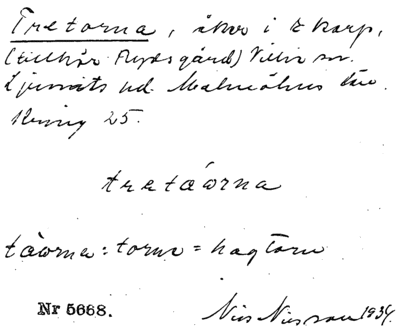 Tretorna, åker i Ekarp,
(tillhör Rydsgård) Villie sn.
Ljunits hd. Malmöhus län.
Kring 25.
tretåorna
tåorna = torne = hagtorn
Nr 5668.
Nils Nilsson 1934.